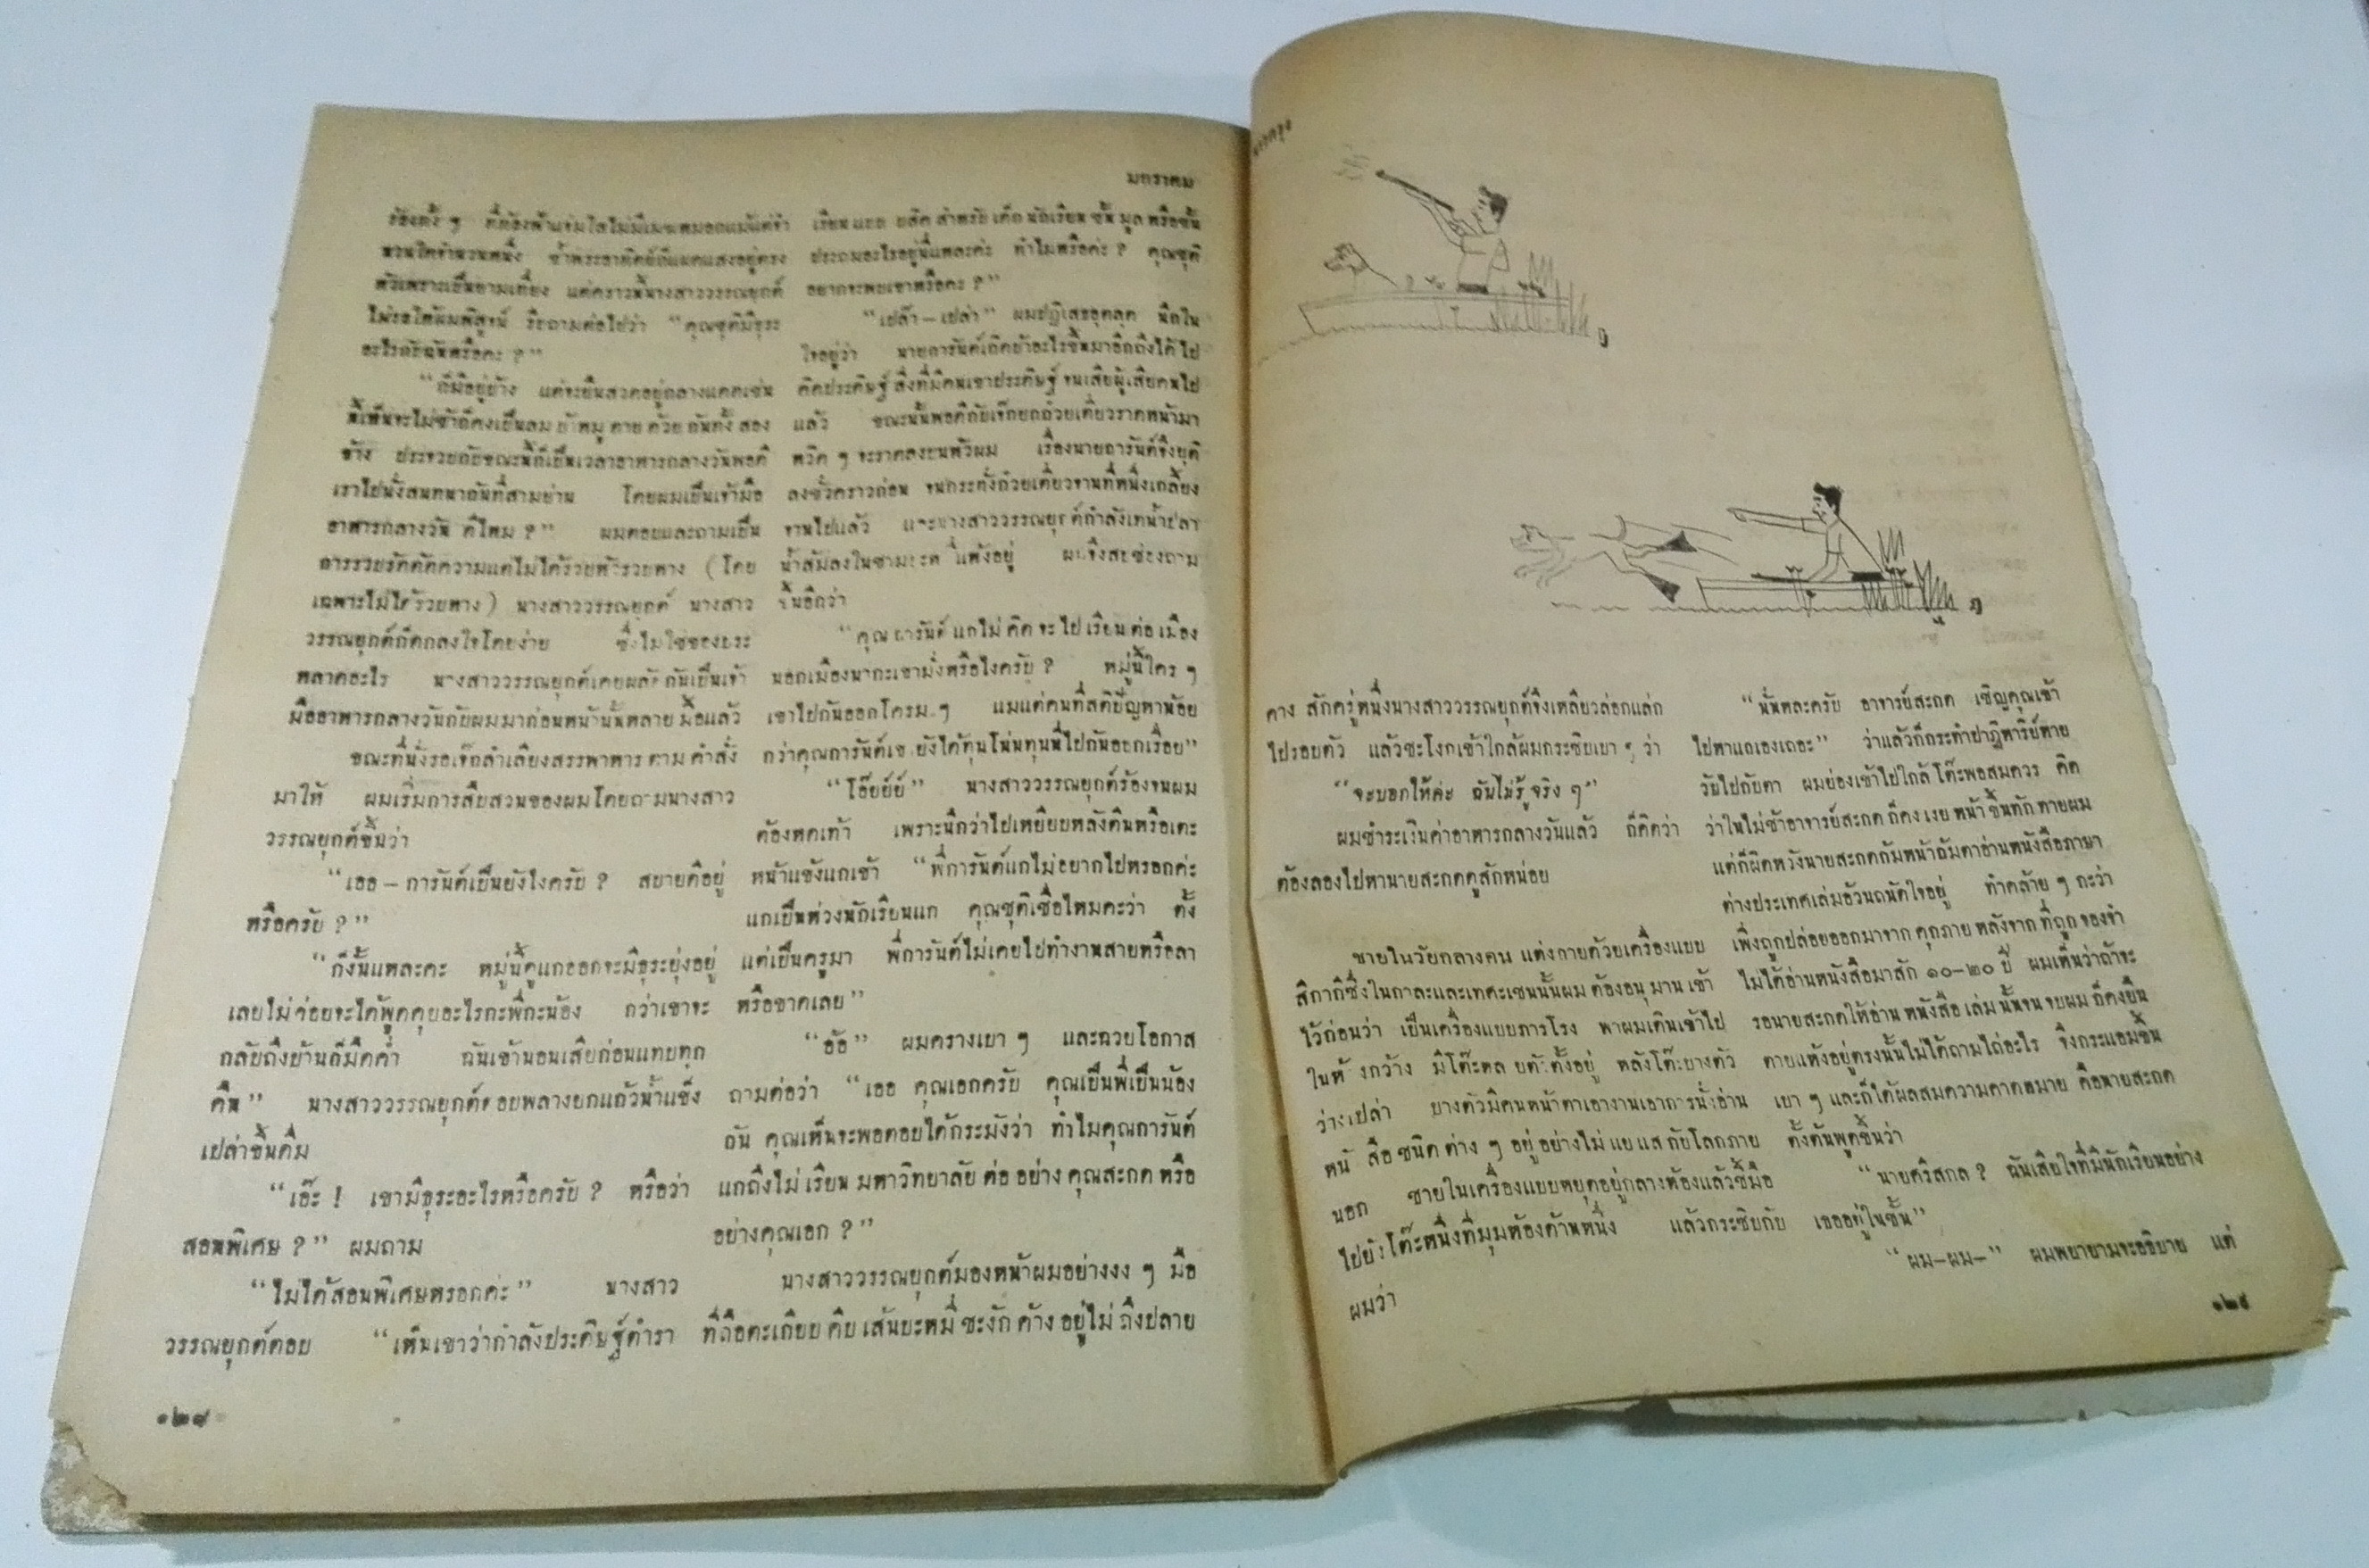 มกราคม
ร้องทั้ง ๆ ที่ท้องฟ้าแจ่มใสไม่มีเมฆหมอกแม้แต่จำ
นวนนิดจำนวนหนึ่ง ซ้ำพระอาทิตย์ก็แผดแสงอยู่ตรง
หัวเพราะเป็นยามเที่ยง แต่คราวนี้นางสาววรรณยุกต์
ไม่รอให้ผมพิสูจน์ รีบถามต่อไปว่า “คุณชุติมีธุระ
อะไรกะฉันหรือคะ ?”
“ก็มีอยู่บ้าง แต่จะยืนสวดอยู่กลางแดดเช่น
นี้เห็นจะไม่ช้าก็คงเป็นลม บ้าหมู ตาย ด้วย กันทั้ง สอง
ข้าง ประจวบกับขณะนี้ก็เป็นเวลาอาหารกลางวันพอดี
เราไปนั่งสนทนากันที่สามย่าน โดยผมเป็นเจ้ามือ
อาหารกลางวัน ดีไหม ?” ผมตอบและถามเป็น
การรวบรัดตัดความแต่ไม่ได้รวบหัวรวบหาง (โดย
เฉพาะไม่ได้รวบหาง) นางสาววรรณยุกต์ นางสาว
วรรณยุกต์ก็ตกลงใจโดยง่าย ซึ่งไม่ใช่ของประ
หลาดอะไร นางสาววรรณยุกต์เคยผลัดกันเป็นเจ้า
มืออาหารกลางวันกับผมมาก่อนหน้านั้นหลาย มื้อแล้ว
ขณะที่นั่งรอเจ๊กลำเลียงสรรพาหาร ตาม คำสั่ง
มาให้ ผมเริ่มการสืบสวนของผมโดยถามนางสาว
วรรณยุกต์ขึ้นว่า
“เออ – การันต์เป็นยังไงครับ ? สบายดีอยู่
หรือครับ ?”
“ก็งั้นแหละคะ หมู่นี้ดูแกออกจะมีธุระยุ่งอยู่
เลยไม่ค่อยจะได้พูดคุยอะไรกะพี่กะน้อง กว่าเขาจะ
กลับถึงบ้านก็มืดค่ำ ฉันเข้านอนเสียก่อนแทบทุก
คืน” นางสาววรรณยุกต์ตอบพลางยกแก้วน้ำแข็ง
เปล่าขึ้นดื่ม
“เอ๊ะ ! เขามีธุระอะไรหรือครับ ? หรือว่า
สอนพิเศษ ?” ผมถาม
“ไม่ได้สอนพิเศษหรอกค่ะ” นางสาว
วรรณยุกต์ตอบ “เห็นเขาว่ากำลังประดิษฐ์ตำรา
๑๒๘
เรียนแบบ สำหรับ เด็ก นักเรียน ชั้น มูล หรือชั้น
ประถมอะไรอยู่นี่แหละค่ะ ทำไมหรือค่ะ ? คุณชุติ
อยากจะพบเขาหรือคะ ?”
“เปล๊า – เปล่า” ผมปฏิเสธอุตลุด นึกใน
ใจอยู่ว่า นายการันต์เกิดบ้าอะไรขึ้นมาอีกถึงได้ไป
คิดประดิษฐ์ สิ่งที่มีคนเขาประดิษฐ์ จนเสียผู้เสียคนไป
แล้ว ขณะนั้นพอดีกับเจ๊กยกก๋วยเตี๋ยวราดหน้ามา
หวิด ๆ จะราดลงบนหัวผม เรื่องนายการันต์จึงยุติ
ลงชั่วคราวก่อน จนกระทั่งก๋วยเตี๋ยวจานที่หนึ่งเกลี้ยง
จานไปแล้ว และนางสาววรรณยุกต์กำลังเทน้ำปลา
น้ำส้มลงในชาม แห้งอยู่ ผมจึงสบช่องถาม
ขึ้นอีกว่า
“คุณ การันต์ แกไม่ คิด จะ ไป เรียน ต่อ เมือง
นอกเมืองนากะเขามั่งหรือไงครับ ? หมู่นี้ใคร ๆ
เขาไปกันออกโครม ๆ แม้แต่คนที่สติปัญหาน้อย
กว่าคุณการันต์เขายังได้ทุนโน่นทุนนี่ไปกันออกเรื่อย”
“โอ๊ยย์ย์” นางสาววรรณยุกต์ร้องจนผม
ต้องหดเท้า เพราะนึกว่าไปเหยียบหลังตีนหรือเตะ
หน้าแข้งแกเข้า “พี่การันต์แกไม่อยากไปหรอกค่ะ
แกเป็นห่วงนักเรียนแก คุณชุติเชื่อไหมคะว่า ตั้ง
แต่เป็นครูมา พี่การันต์ไม่เคยไปทำงานสายหรือลา
หรือขาดเลย”
“อ้อ” ผมครางเบา ๆ และฉวยโอกาส
ถามต่อว่า “เออ คุณเอกครับ คุณเป็นพี่เป็นน้อง
กัน คุณเห็นจะพอตอบได้กระมังว่า ทำไมคุณการันต์
แกถึงไม่ เรียน มหาวิทยาลัย ต่อ อย่าง คุณสะกด หรือ
อย่างคุณเอก ?”
นางสาววรรณยุกต์มองหน้าผมอย่างงง ๆ มือ
ที่ถือตะเกียบ คีบ เส้นบะหมี่ ชะงัก ค้าง อยู่ไม่ ถึงปลาย
คาง สักครู่หนึ่งนางสาววรรณยุกต์จึงเหลียวล่อกแล่ก
ไปรอบตัว แล้วชะโงกเข้าใกล้ผมกระซิบเบา ๆ ว่า
“จะบอกให้ค่ะ ฉันไม่รู้จริง ๆ”
ผมชำระเงินค่าอาหารกลางวันแล้ว ก็คิดว่า
ต้องลองไปหานายสะกดดูสักหน่อย
ชายในวัยกลางคน แต่งกายด้วยเครื่องแบบ
สีกากีซึ่งในกาละและเทศะเช่นนั้นผม ต้องอนุมาน เข้า
ไว้ก่อนว่า เป็นเครื่องแบบภารโรง พาผมเดินเข้าไป
ในห้องกว้าง มีโต๊ะหลายตัวตั้งอยู่ หลังโต๊ะบางตัว
ว่างเปล่า บางตัวมีคนหน้าตาเอางานเอาการนั่งอ่าน
หนังสือ ชนิด ต่าง ๆ อยู่ อย่างไม่ แยแส กับโลกภาย
นอก ชายในเครื่องแบบหยุดอยู่กลางห้องแล้วชี้มือ
ไปยังโต๊ะหนึ่งที่มุมห้องด้านหนึ่ง แล้วกระซิบกับ
ผมว่า
“นั่นหละครับ อาจารย์สะกด เชิญคุณเข้า
ไปหาแกเองเถอะ” ว่าแล้วก็กระทำปาฏิหาริย์หาย
วับไปกับตา ผมย่องเข้าไปใกล้โต๊ะพอสมควร คิด
ว่าในไม่ช้าอาจารย์สะกด ก็คง เงย หน้า ขึ้นทัก ทายผม
แต่ก็ผิดหวังนายสะกดก้มหน้าก้มตาอ่านหนังสือภาษา
ต่างประเทศเล่มอ้วนถนัดใจอยู่ ทำคล้าย ๆ กะว่า
เพิ่งถูกปล่อยออกมาจาก คุกภาย หลังจาก ที่ถูก จองจำ
ไม่ได้อ่านหนังสือมาสัก ๑๐–๒๐ ปี ผมเห็นว่าถ้าจะ
รอนายสะกดให้อ่าน หนังสือ เล่ม นั้นจน จบผม ก็คงยืน
ตายแห้งอยู่ตรงนั้นไม่ได้ถามไถ่อะไร จึงกระแอมขึ้น
เบา ๆ และก็ได้ผลสมความคาดหมาย คือนายสะกด
ตั้งต้นพูดขึ้นว่า
“นายศรีสกล ? ฉันเสียใจที่มีนักเรียนอย่าง
เธออยู่ในชั้น”
“ผม–ผม–” ผมพยายามจะอธิบาย แต่
๑๒๙